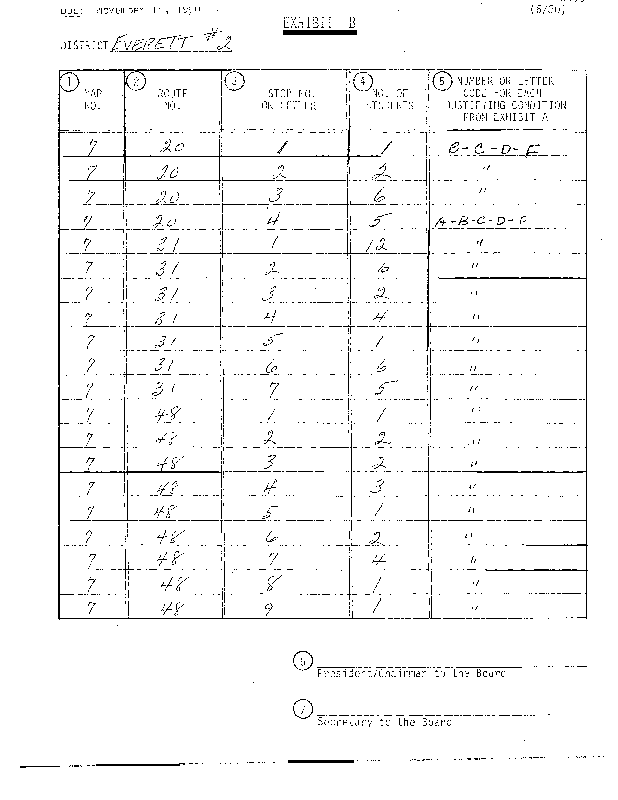 DUE: NOVEMBER 1
(6/80)
EXHIBIT B
DISTRICT EVERETT #2
1 MAP NO. 2 ROUTE NO. 3 STOP NO. OR LETTER 4 NO. OF STUDENTS 5 NUMBER OR LETTER CODE FOR EACH JUSTIFYING CONDITION FROM EXHIBIT A
7 20 1 1 B-C-D-F
7 20 2 2 "
7 20 3 6 "
7 20 4 5 A-B-C-D-F
7 31 1 12 "
7 31 2 6 "
7 31 3 2 "
7 31 4 4 "
7 31 5 1 "
7 31 6 6 "
7 31 7 5 "
7 48 1 1 "
7 48 2 2 "
7 48 3 2 "
7 48 4 3 "
7 48 5 1 "
7 48 6 2 "
7 48 7 4 "
7 48 8 1 "
7 48 9 1 "
6
President/Chairman to the Board
7
Secretary to the Board